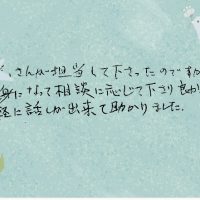 さんが担当して下さったのですが
身になって相談に応じて下さり良か
に話しが出来て助かりました.